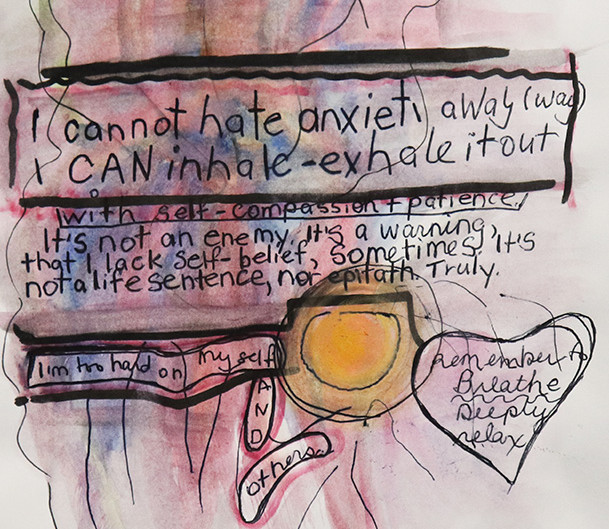 I cannot hate anxieti away (way)
I CAN inhale-exhale it out
with self-compassion + patience.
It's not an enemy. It's a warning,
that I lack self-belief, sometimes. It's
not a life sentence, nor epitath. Truly.
I'm too hard on myself
AND
others
remember to
Breathe
Deeply
relax